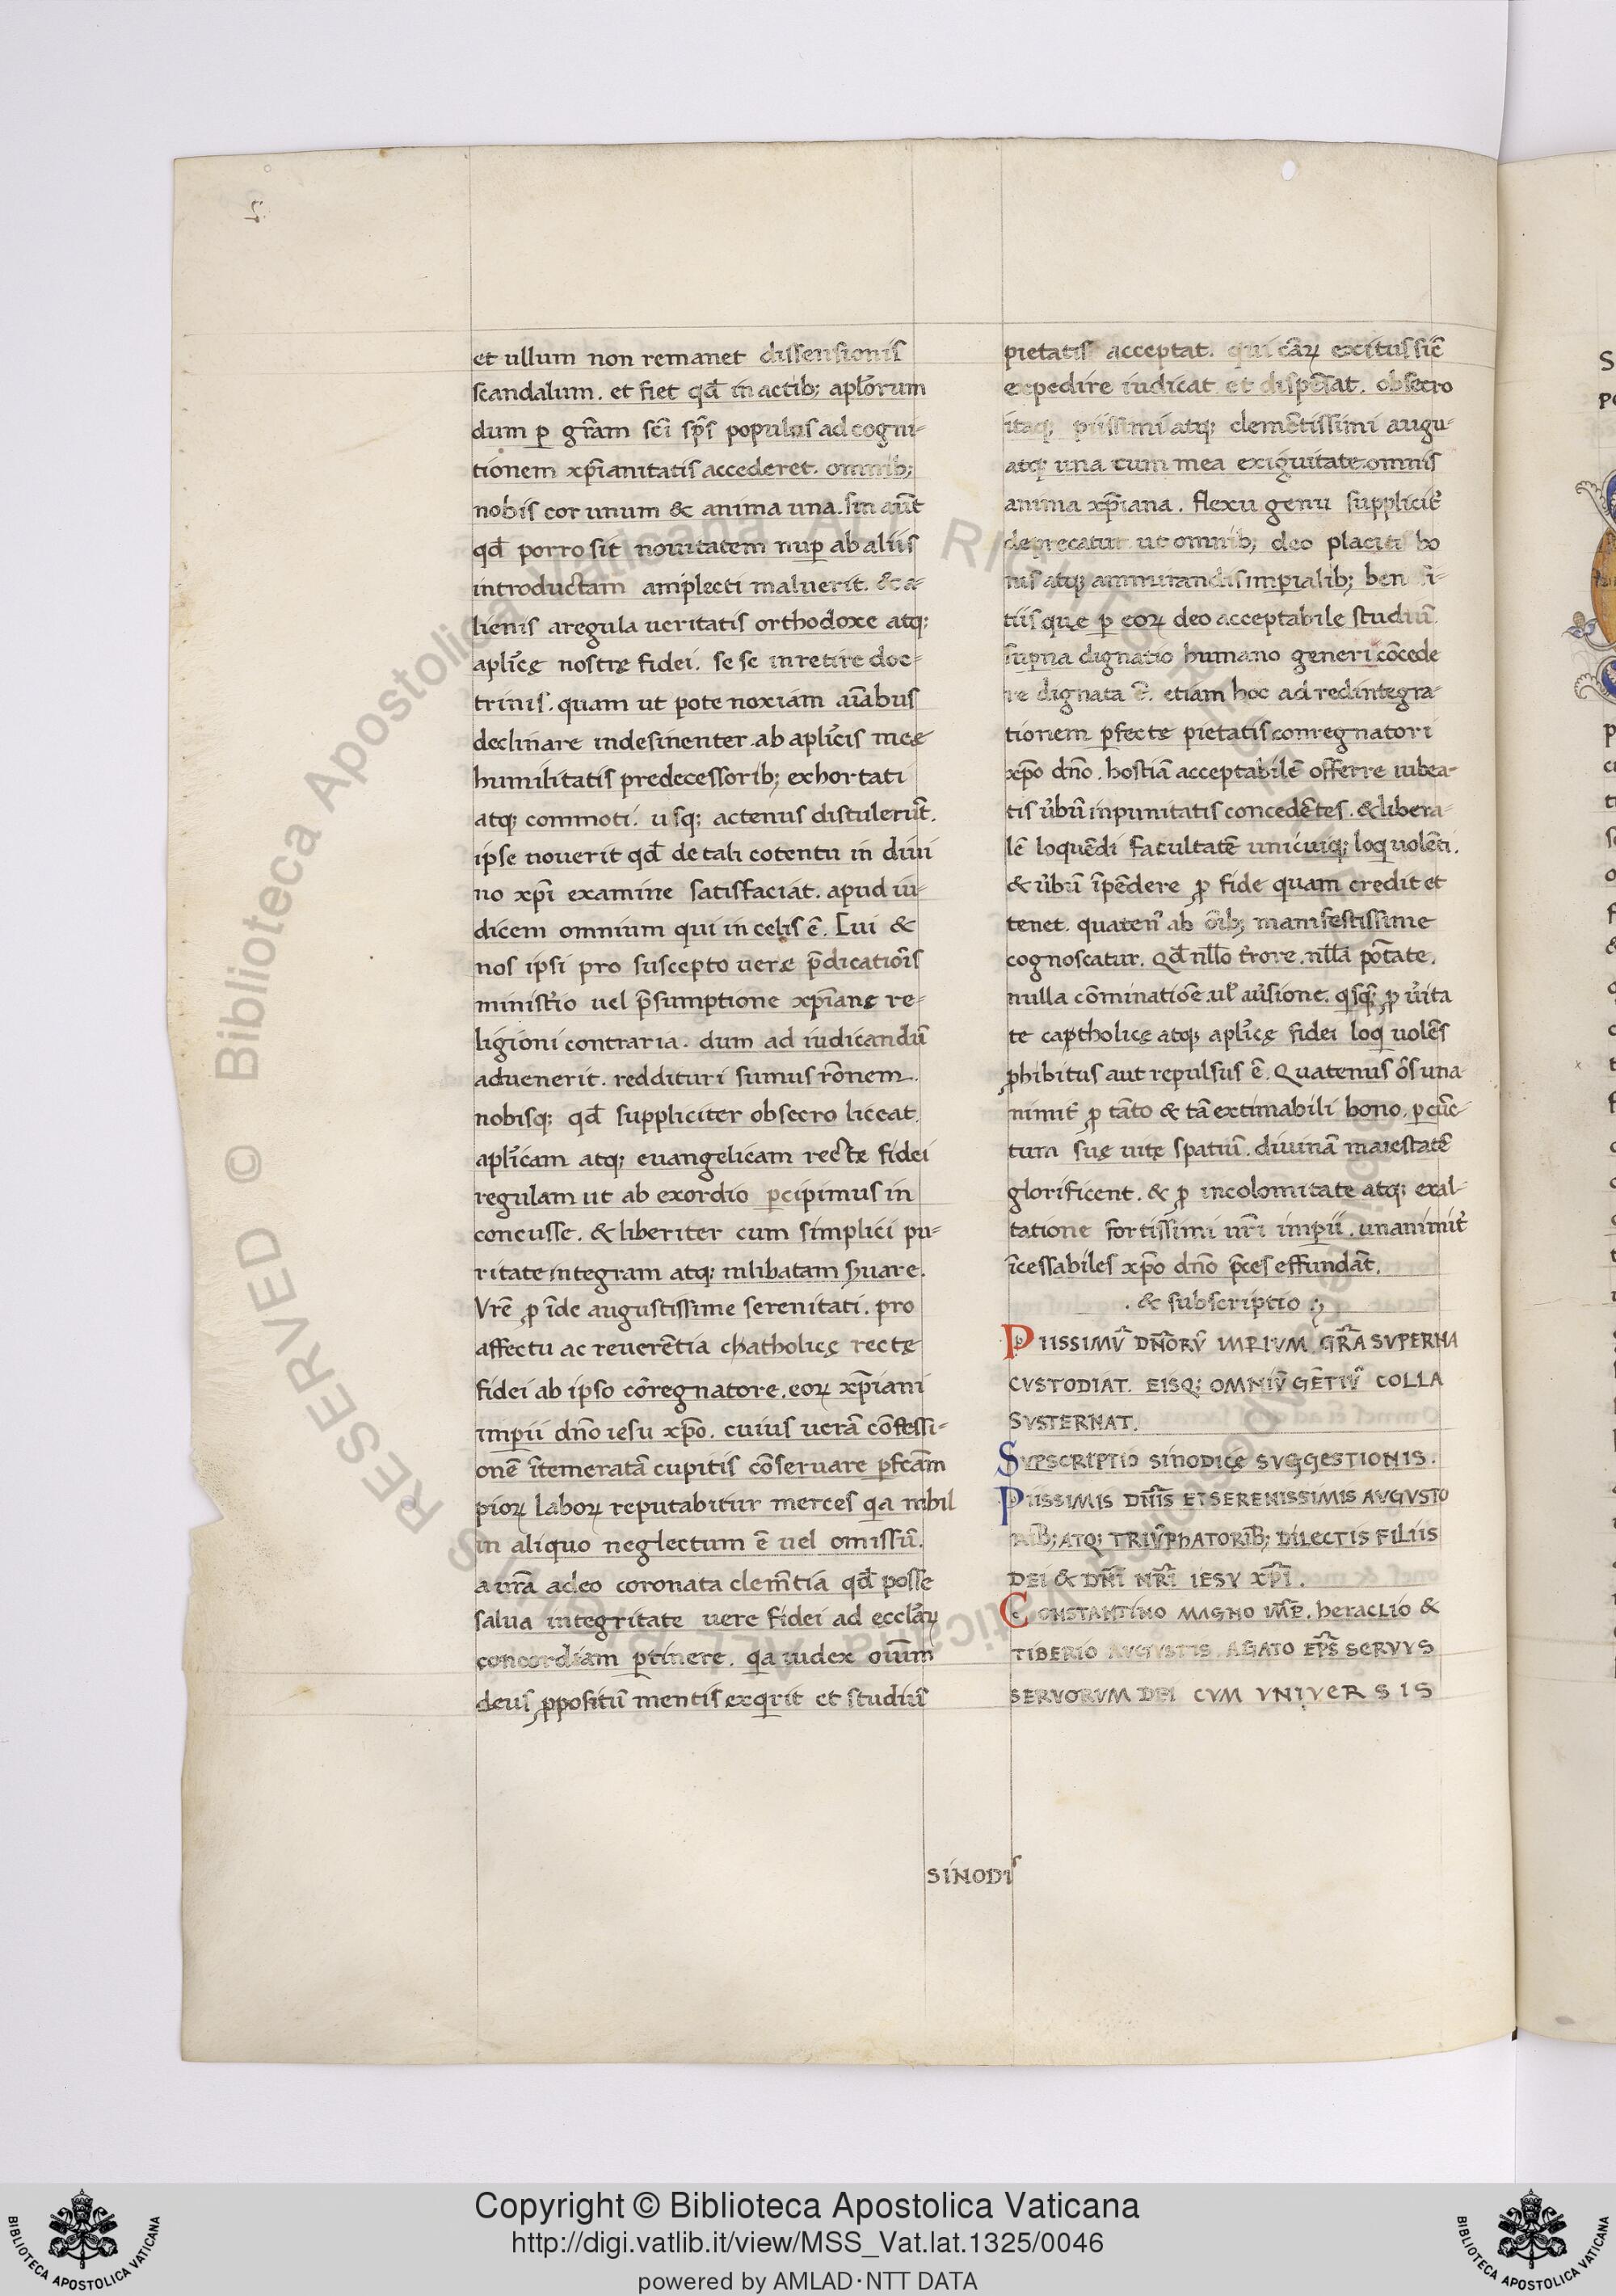 et ullum non remanet dissensionis
scandalum. et fiet qđ in actib; apl̃orum
dum ꝑ gr̃am sc̃i sp̃s populus ad cogni-
tionem xp̃ianitatis accederet. omnib;
nobis cor unum & anima una. sin aũt
qđ porro sit nouitatem nuꝑ ab aliis
introductam amplecti maluerit. & a-
lienis a regula ueritatis orthodoxe atq;
apl̃icę nostrę fidei. se se inretire doc-
trinis. quam ut pote noxiam aĩabus
declinare indesinenter ab apl̃icis meę
humilitatis predecessorib; exhortati
atq; commoti. usq; actenus distulerũt.
ipse nouerit qđ de tali cotentu in diui
no xp̃i examine satisfaciat. apud iu-
dicem omnium qui in celis ẽ. Cui &
nos ipsi pro suscepto uerę p̃dicatiõis
minist̃io uel p̃sumptione xp̃ianę re-
ligioni contraria. dum ad iudicandũ
aduenerit. reddituri sumus rõnem.
nobisq; qđ suppliciter obsecro liceat.
apl̃icam atq; euangelicam rectę fidei
regulam ut ab exordio ꝑcipimus in
concusse. & liberiter cum simplici pu-
ritate integram atq; inlibatam s̃uare.
Vrẽ ꝓ ĩde augustissime serenitati. pro
affectu ac reuerẽtia chatholicę rectę
fidei ab ipso cõregnatore. eoꝝ xp̃iani
imꝑii dño iesu xp̃o. cuius uerã cõfessi-
onẽ ĩtemeratã cupitis cõseruare ꝑfcãm
pioꝝ laboꝝ reputabitur merces qa nihil
in aliquo neglectum ẽ uel omissũ.
a ur̃a adeo coronata clem̃tia qđ posse
salua integritate uere fidei ad eccl̃aꝝ
concordiam ꝑtinere. qa iudex oĩum
deus ꝓpositũ mentis exqrit et studiũ
pietatis acceptat. qui cãꝝ exitus sic̃
expedire iudicat et dispẽsat. obsecro
itaq; piissimi atq; clemẽtissimi augu-
atq; una cum mea exiguitate. omnis
anima xp̃iana. flexu genu supplicit̃
deprecatur ut omnib; deo placiti bo
nis atq; ammirandis imꝑialib; benefi-
tiis quę ꝑ eoꝝ deo acceptabile studiũ
suꝑna dignatio humano generi cõcede
re dignata ẽ. etiam hoc ad redintegra-
tionem ꝑfecte pietatis conregnatori
xp̃o dño. hostiã acceptabilẽ offerre iubea-
tis ũbũ inpunitatis concedẽtes. & libera-
lẽ loquẽdi facultatẽ unicuiq; loq uolẽti.
& ũbũ ĩpẽdere ꝓ fide quam credit et
tenet. quaten᾽ ab õib; manifestissime
cognoscatur. Qđ nllo t̃rore. nlla potãte.
nulla cõminatiõe. ul̃ aũsione. qsq; ꝓ ũita
te captholicę atq; apl̃icę fidei loq uolẽs
ꝓhibitus aut repulsus ẽ. Quatenus õs una
nimit̃ ꝓ tãto & tã extimabili bono. ꝑ cũc-
tura suę uitę spatiũ. diuinã maiestatẽ
glorificent. & ꝓ incolomitate atq; exal-
tatione fortissimi nr̃i imꝑii. unanimit̃
ĩcessabiles xp̃o dño p̃ces effundãt.
. & subscriptio
PIISSIMV̄ DÑORV̄ IMPIVM GR̃A SVPERNA
CVSTODIAT. EISQ; OMNIV̄ GẼTIV̄ COLLA
SVSTERNAT.
SVPSCRIPTIO SINODICĘ SVGGESTIONIS.
PIISSIMIS DÑIS ET SERENISSIMIS AVGVSTO
RIB; ATQ; TRIV̄PHATORIB; DILECTIS FILIIS
DEI & DÑI NR̃I IESV XP̃I.
CONSTANTINO MAGNO IMP̃. HERACLIO &
TIBERIO AVGVSTIS AGATO EP̃S SERVVS
SERVORVM DEI CVM VNIVERSIS
SINODIS
Copyright © Biblioteca Apostolica Vaticana
http://digi.vatlib.it/view/MSS_Vat.lat.1325/0046
powered by AMLAD·NTT DATA